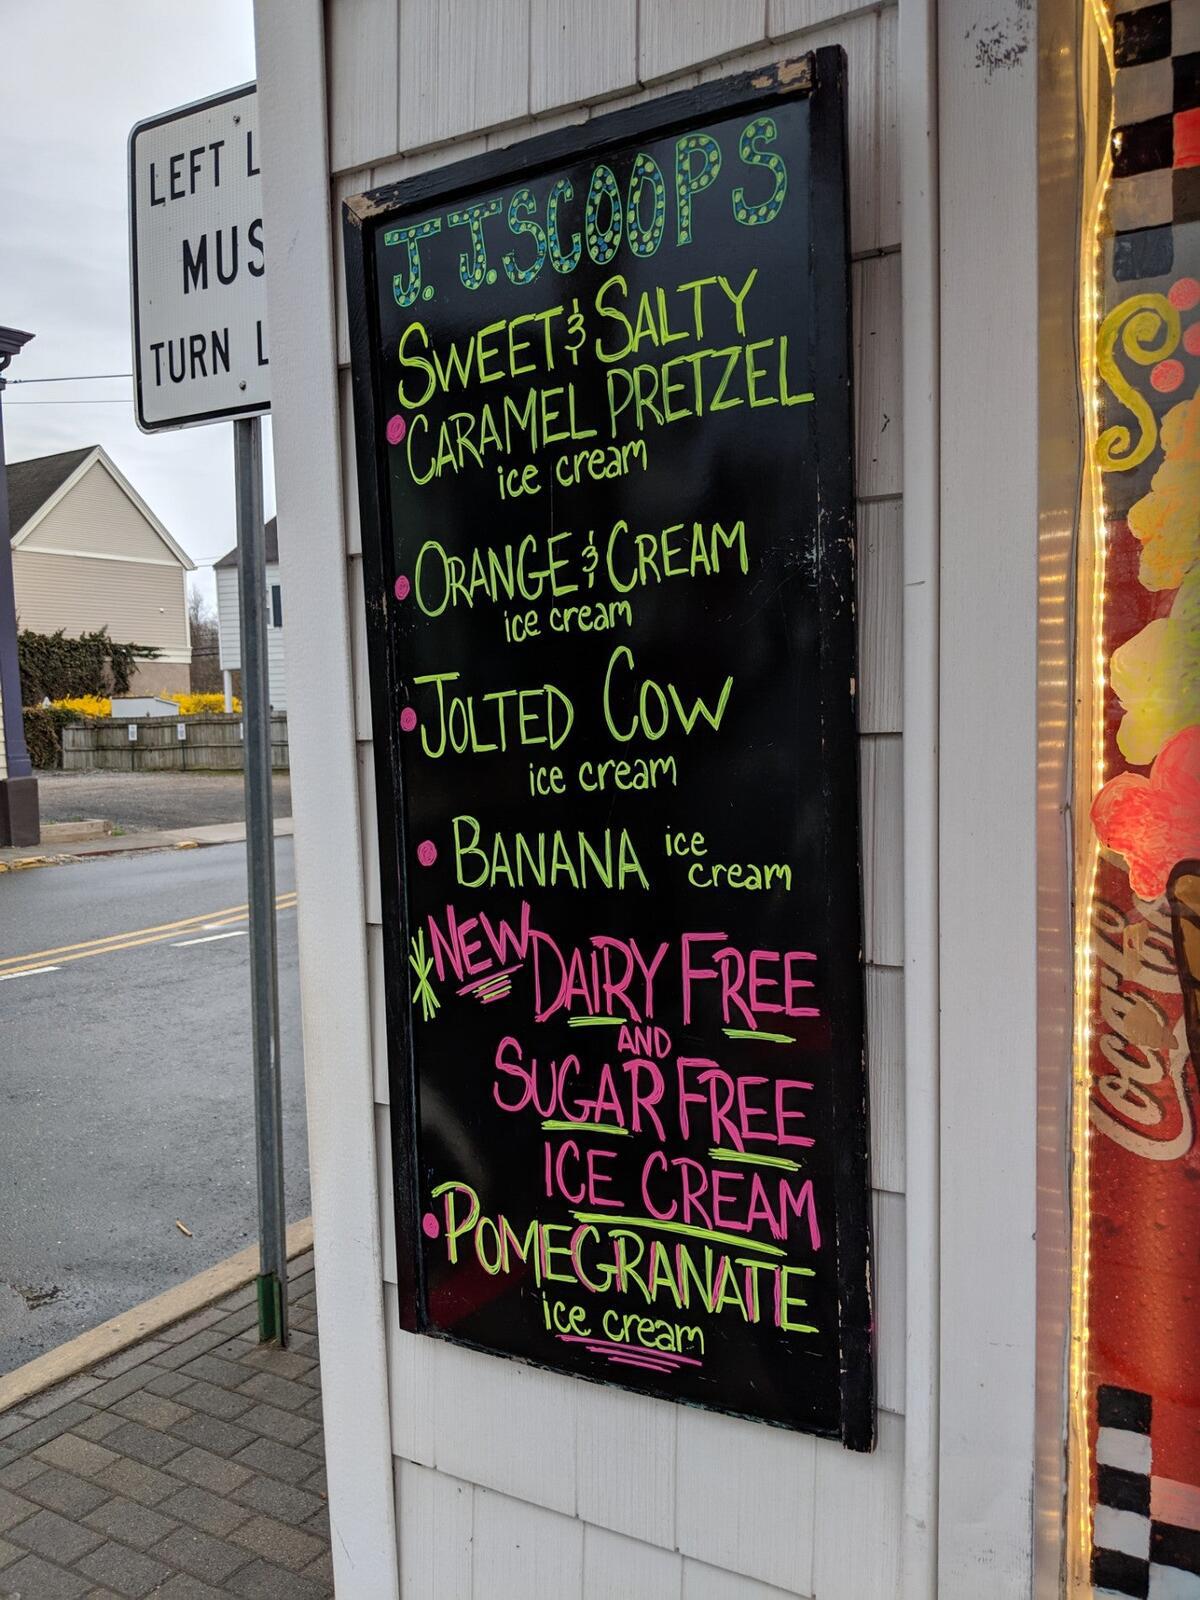 LEFT L
MUS
TURN L
J. J. SCOOPS
SWEET & SALTY
CARAMEL PRETZEL
ice cream
ORANGE & CREAM
ice cream
JOLTED COW
ice cream
BANANA ice
cream
NEW DAIRY FREE
AND
SUGAR FREE
ICE CREAM
POMEGRANATE
ice cream